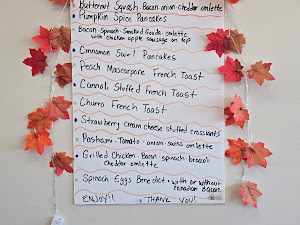 Butternut Squash - Bacon onion-cheddar omlette
• Pumpkin Spice Pancakes
Bacon - Spinach - Smoked Gouda - omlette
with chicken apple sausage on top
• Cinnamon Swirl Pancakes
Peach Mascarpone French Toast
Cannoli Stuffed French Toast
Churro French Toast
• Strawberry cream cheese stuffed croissants
• Pastrami - Tomato - onion - swiss omlette
• Grilled Chicken - Bacon spinach - broccoli
cheddar omlette
• Spinach Eggs Benedict • with or without
canadian Bacon
ENJOY!! THANK YOU!